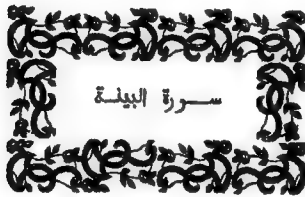 سورة البينة